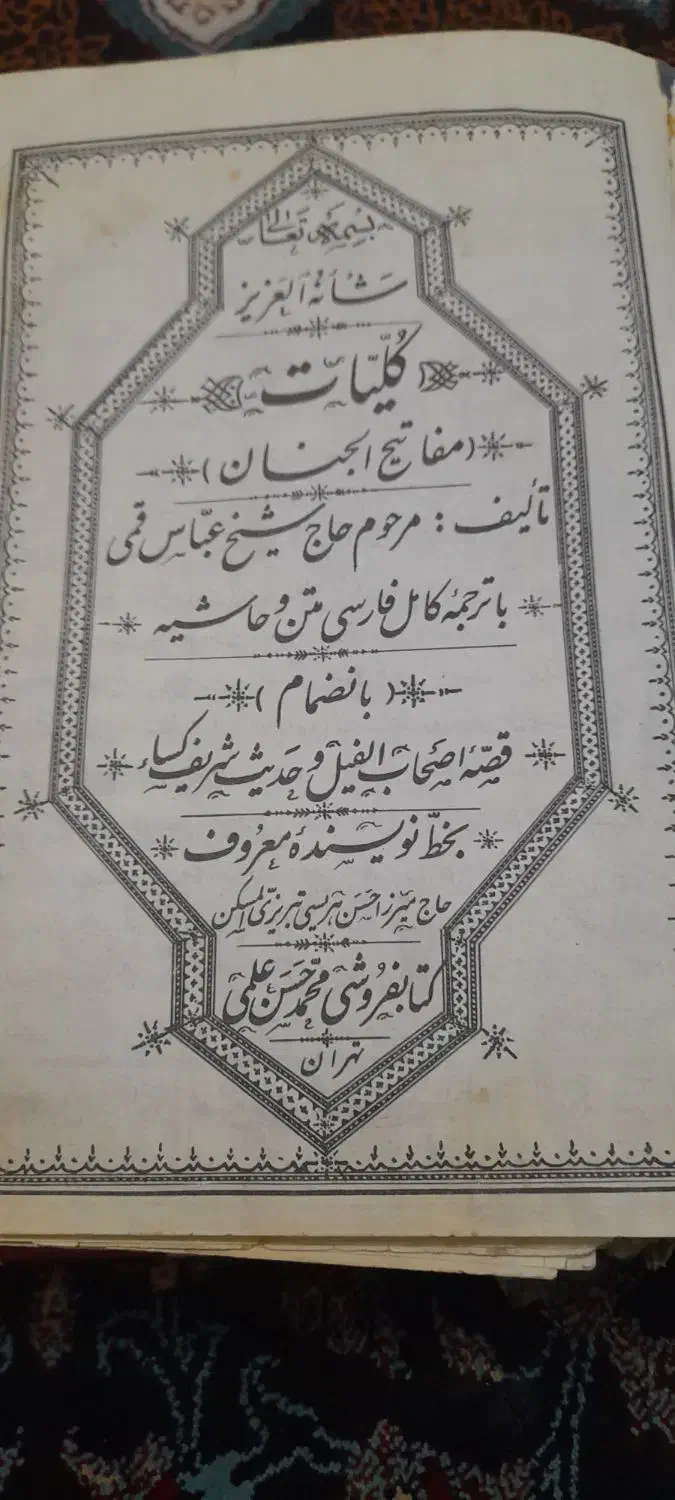 بسمه تعالی
شأنه العزیز
کُلیّات
(مفاتیح الجنان)
تألیف: مرحوم حاج شیخ عبّاس قمی
با ترجمهٔ کامل فارسی متن و حاشیه
(بانضمام)
قصّهٔ اصحاب الفیل و حدیث شریف کساء
بخطّ نویسندهٔ معروف
حاج میرزا حسن هریسی تبریزی المسکن
کتابفروشی محمّد حسن علمی
تهران